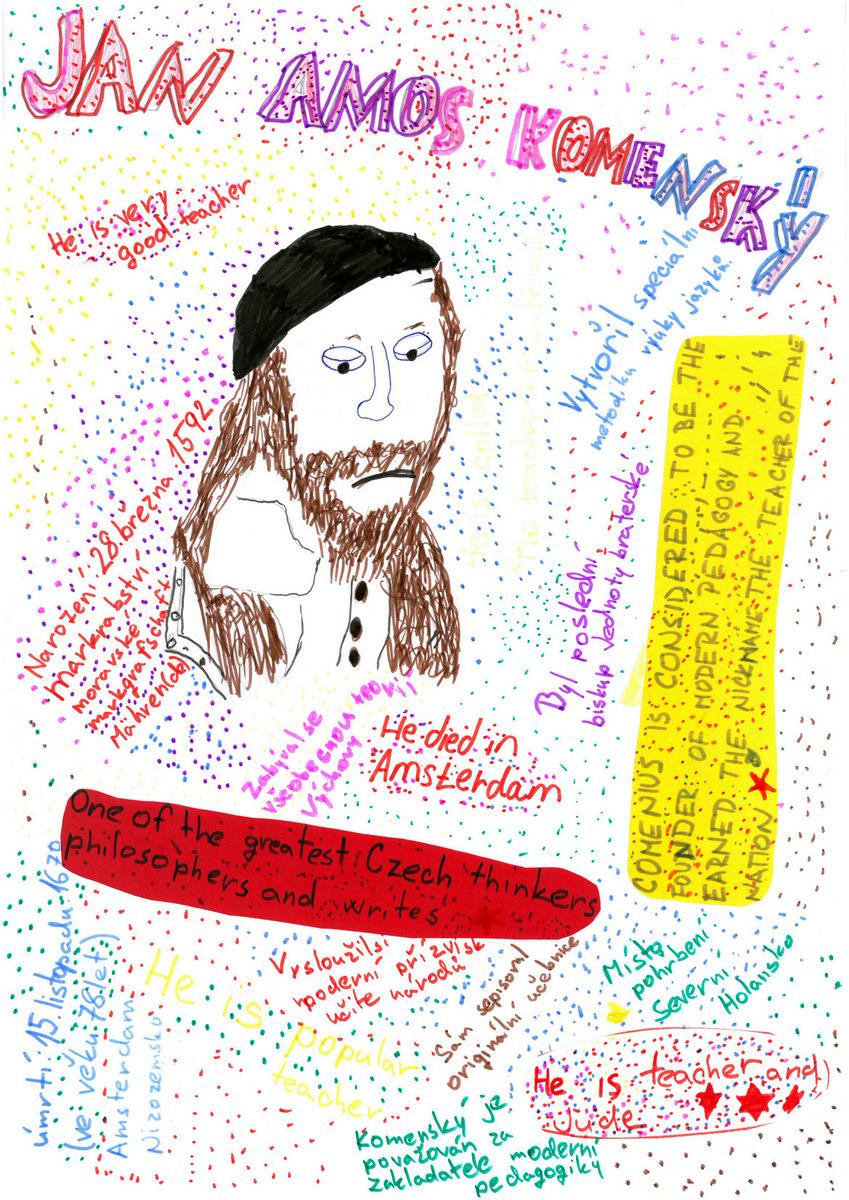 JAN AMOS KOMENSKÝ
He is very
good teacher
Vytvořil speciální
metodiku výuky jazyků.
He is called
"The teacher
Narození: 28. března 1592
markrabství
moravské
markgrafschaft
Mähren(de)
Byl poslední
biskup Jednoty bratrské
COMENIUS IS CONSIDERED TO BE THE
FOUNDER OF MODERN PEDAGOGY AND
EARNED THE NICKNAME THE TEACHER OF THE
NATION
Zabýval se
všeobecnou teorií
výchovy
He died in
Amsterdam
One of the greatest Czech thinkers
philosophers and writes
úmrtí: 15. listopadu 1670
(ve věku 78 let)
Amsterdam
Nizozemsko
He is popular
teacher
Vysloužil si
moderní přízvisk
učite národů
Sám sepisoval
originální učebnice
Místo
pohrbení
Severní
Holansko
He is teacher and
Jude
Komenský je
považován za
zakladatele moderní
pedagogiky